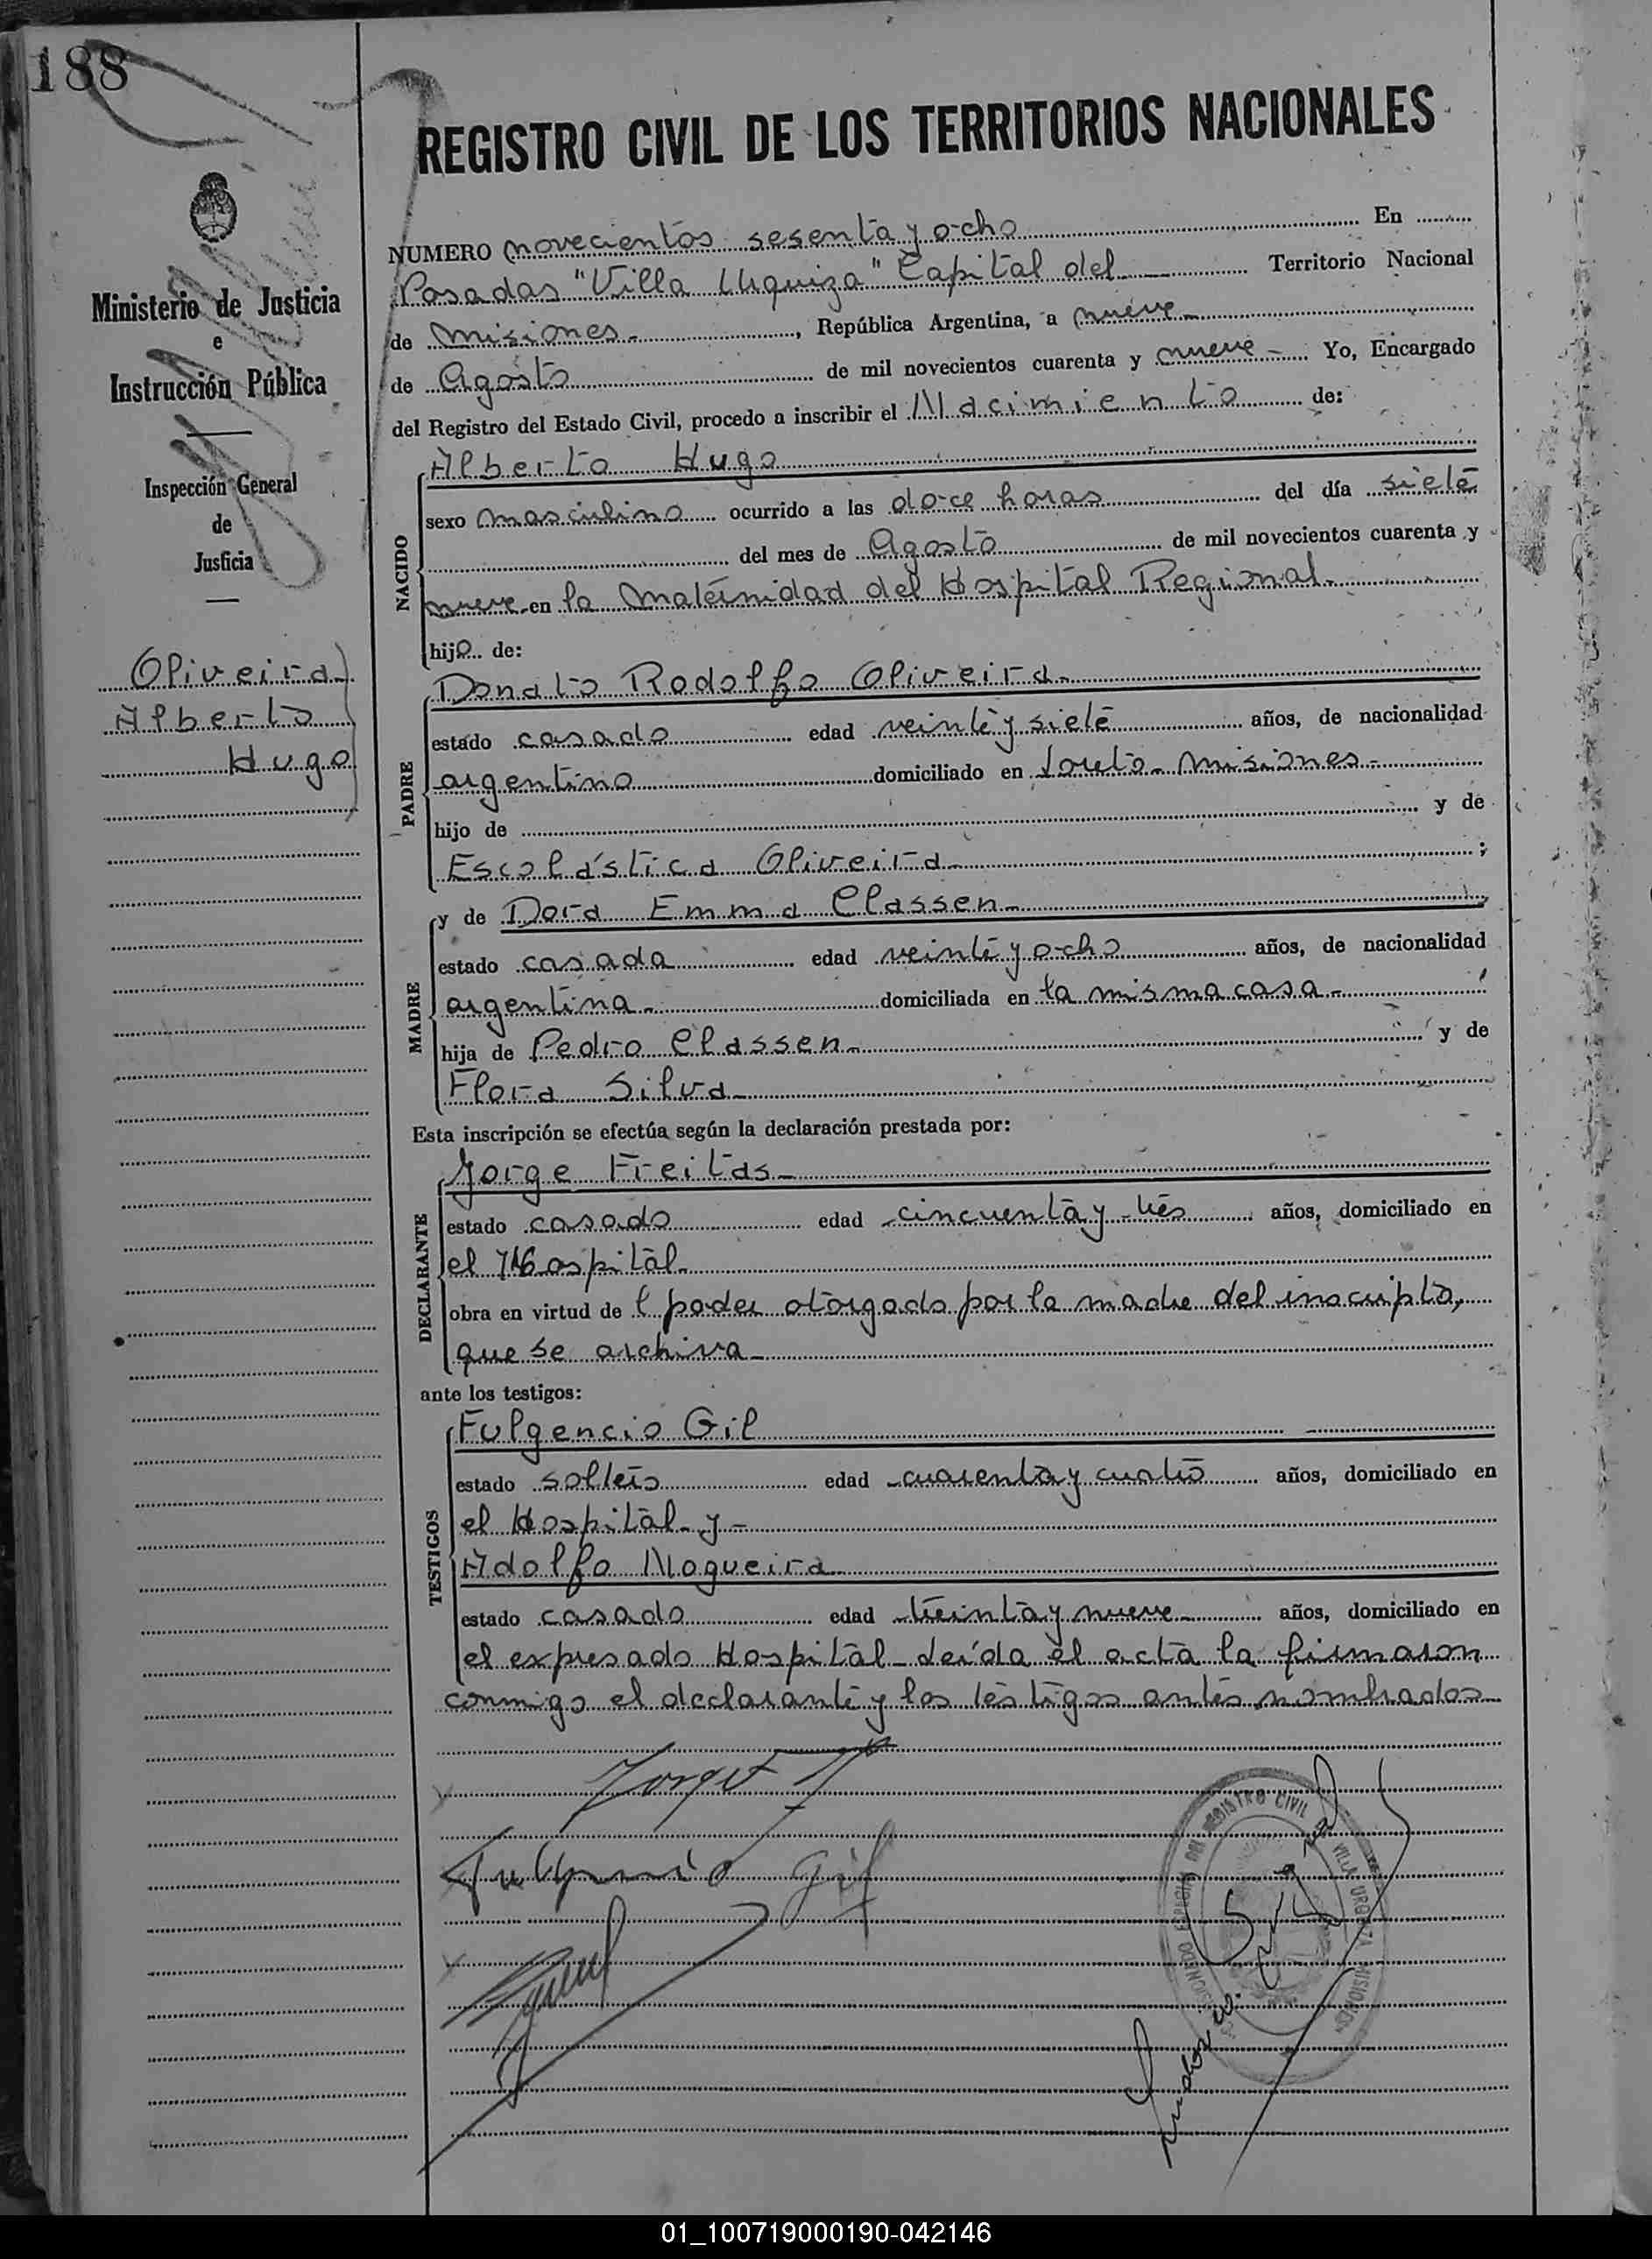 188
Ministerio de Justicia
e
Instrucción Pública
Inspección General
de
Justicia
Oliveira
Alberto
Hugo
REGISTRO CIVIL DE LOS TERRITORIOS NACIONALES
NUMERO novecientos sesenta y ocho En
Posadas "Villa Urquiza" Capital del Territorio Nacional
de Misiones-, República Argentina, a nueve-
de Agosto de mil novecientos cuarenta y nueve- Yo, Encargado
del Registro del Estado Civil, procedo a inscribir el Nacimiento de:
NACIDO
Alberto Hugo
sexo masculino ocurrido a las doce horas del día siete
del mes de Agosto de mil novecientos cuarenta y
nueve en la Maternidad del Hospital Regional-
hijo de:
PADRE
Donato Rodolfo Oliveira-
estado casado edad veinte y siete años, de nacionalidad
argentino domiciliado en Loreto- Misiones-
hijo de y de
Escolástica Oliveira- ;
MADRE
y de Dora Emma Classen-
estado casada edad veinte y ocho años, de nacionalidad
argentina- domiciliada en la misma casa-
hija de Pedro Classen- y de
Flora Silva-
Esta inscripción se efectúa según la declaración prestada por:
DECLARANTE
Jorge Freitas-
estado casado edad cincuenta y tres años, domiciliado en
el Hospital-
obra en virtud de l poder otorgado por la madre del inscripto,
que se archiva-
ante los testigos:
TESTIGOS
Fulgencio Gil
estado soltero edad cuarenta y cuatro años, domiciliado en
el Hospital- y-
Adolfo Nogueira
estado casado edad treinta y nueve- años, domiciliado en
el expresado Hospital- Leída el acta la firmaron
conmigo el declarante y los testigos antes nombrados-
Jorge F
Fulgencio Gil
REGISTRO CIVIL
VILLA URQUIZA MISIONES
01_100719000190-042146